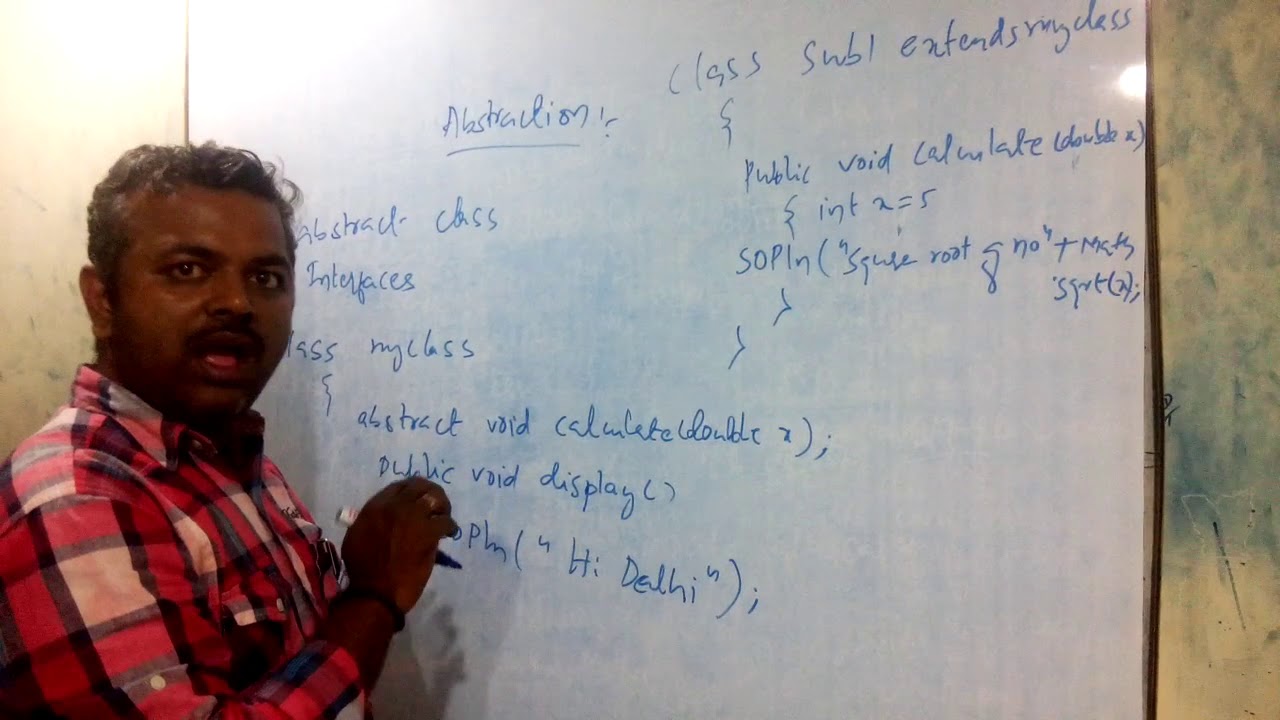 Abstraction :-
abstract class
Interfaces
lass myclass
{
abstract void calculate(double x);
public void display()
OPln(" Hi Delhi");
Class Sub1 extends myclass
{
public void calculate(double x)
{ int x=5
SOPln("Squre root of no"+Math
.sqrt(x);
}
}